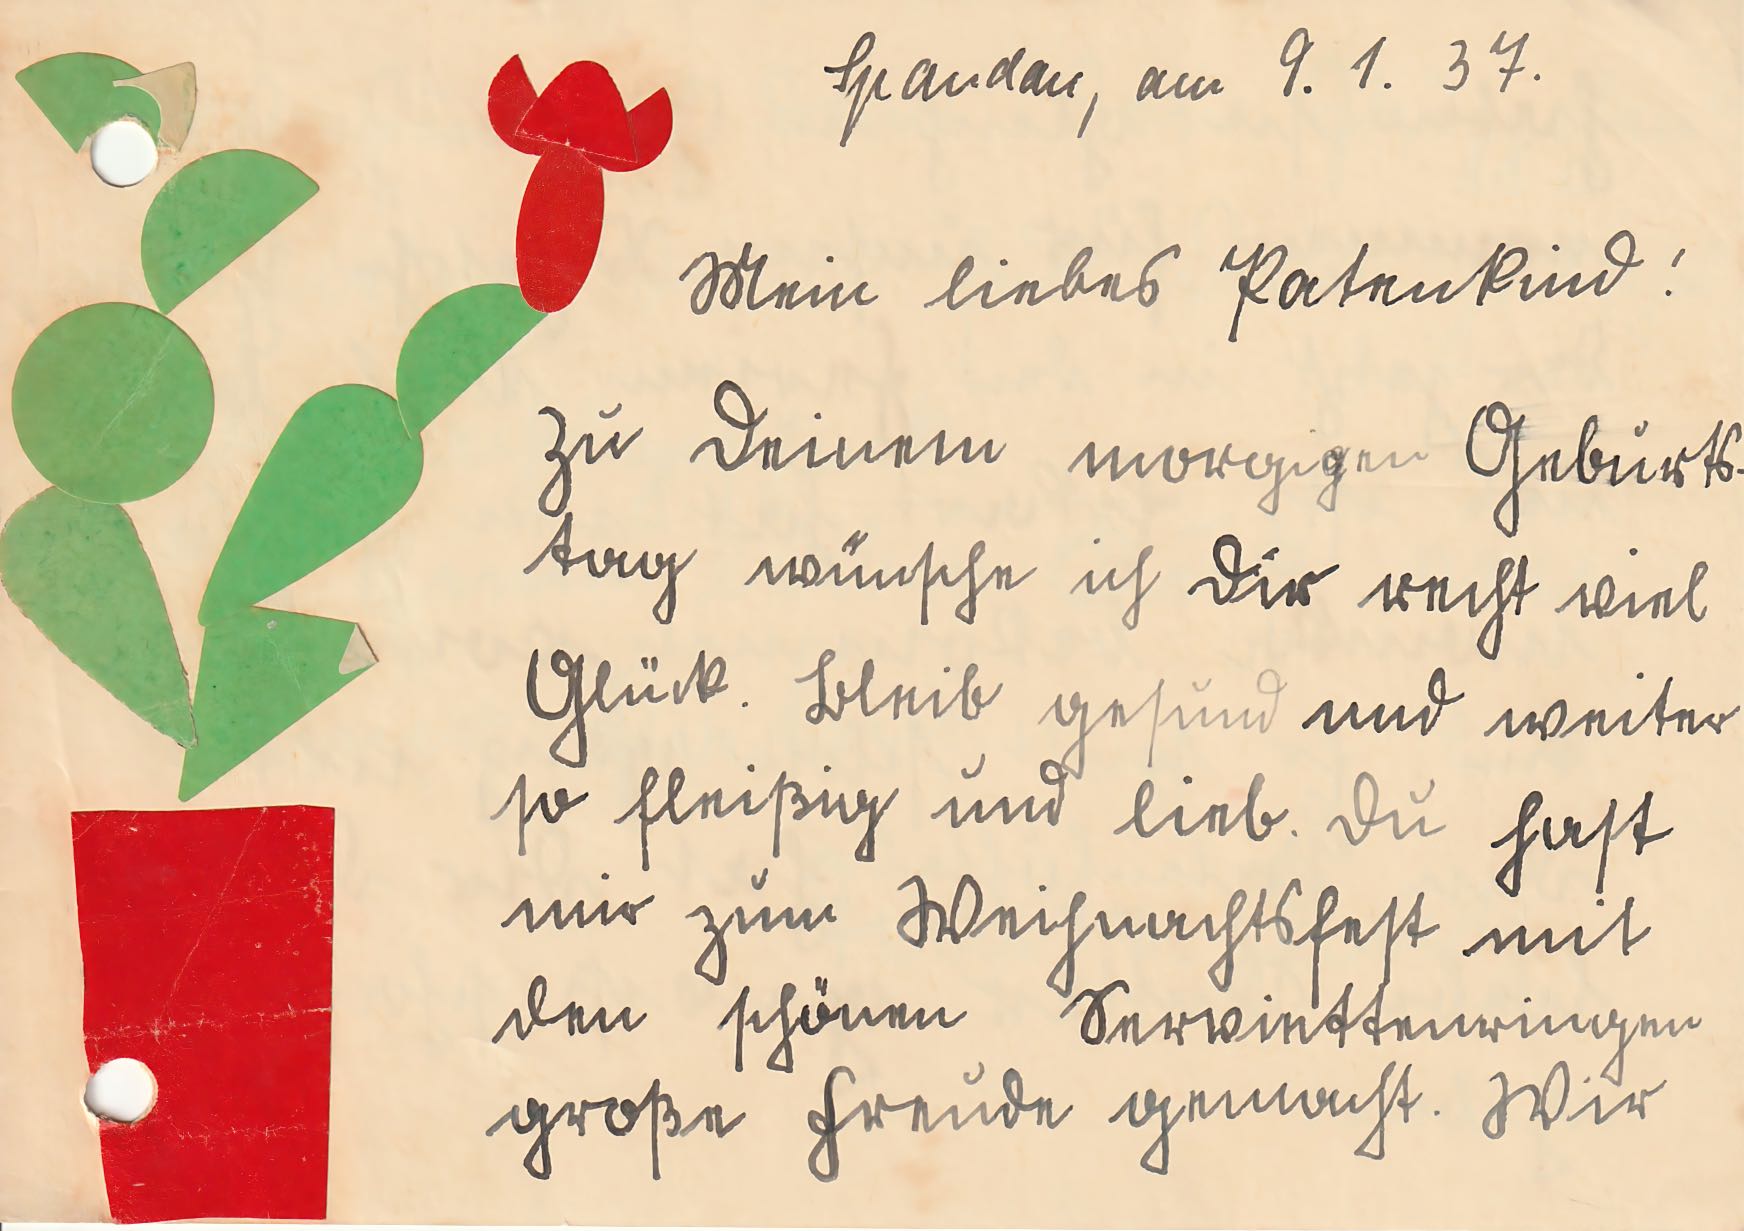 Spandau, am 9. 1. 37.
Mein liebes Patenkind!
Zu Deinem morgigen Geburts-
tag wünsche ich Dir recht viel
Glück. Bleib gesund und weiter
so fleißig und lieb. Du hast
mir zum Weihnachtsfest mit
den schönen Serviettenringen
große Freude gemacht. Wir